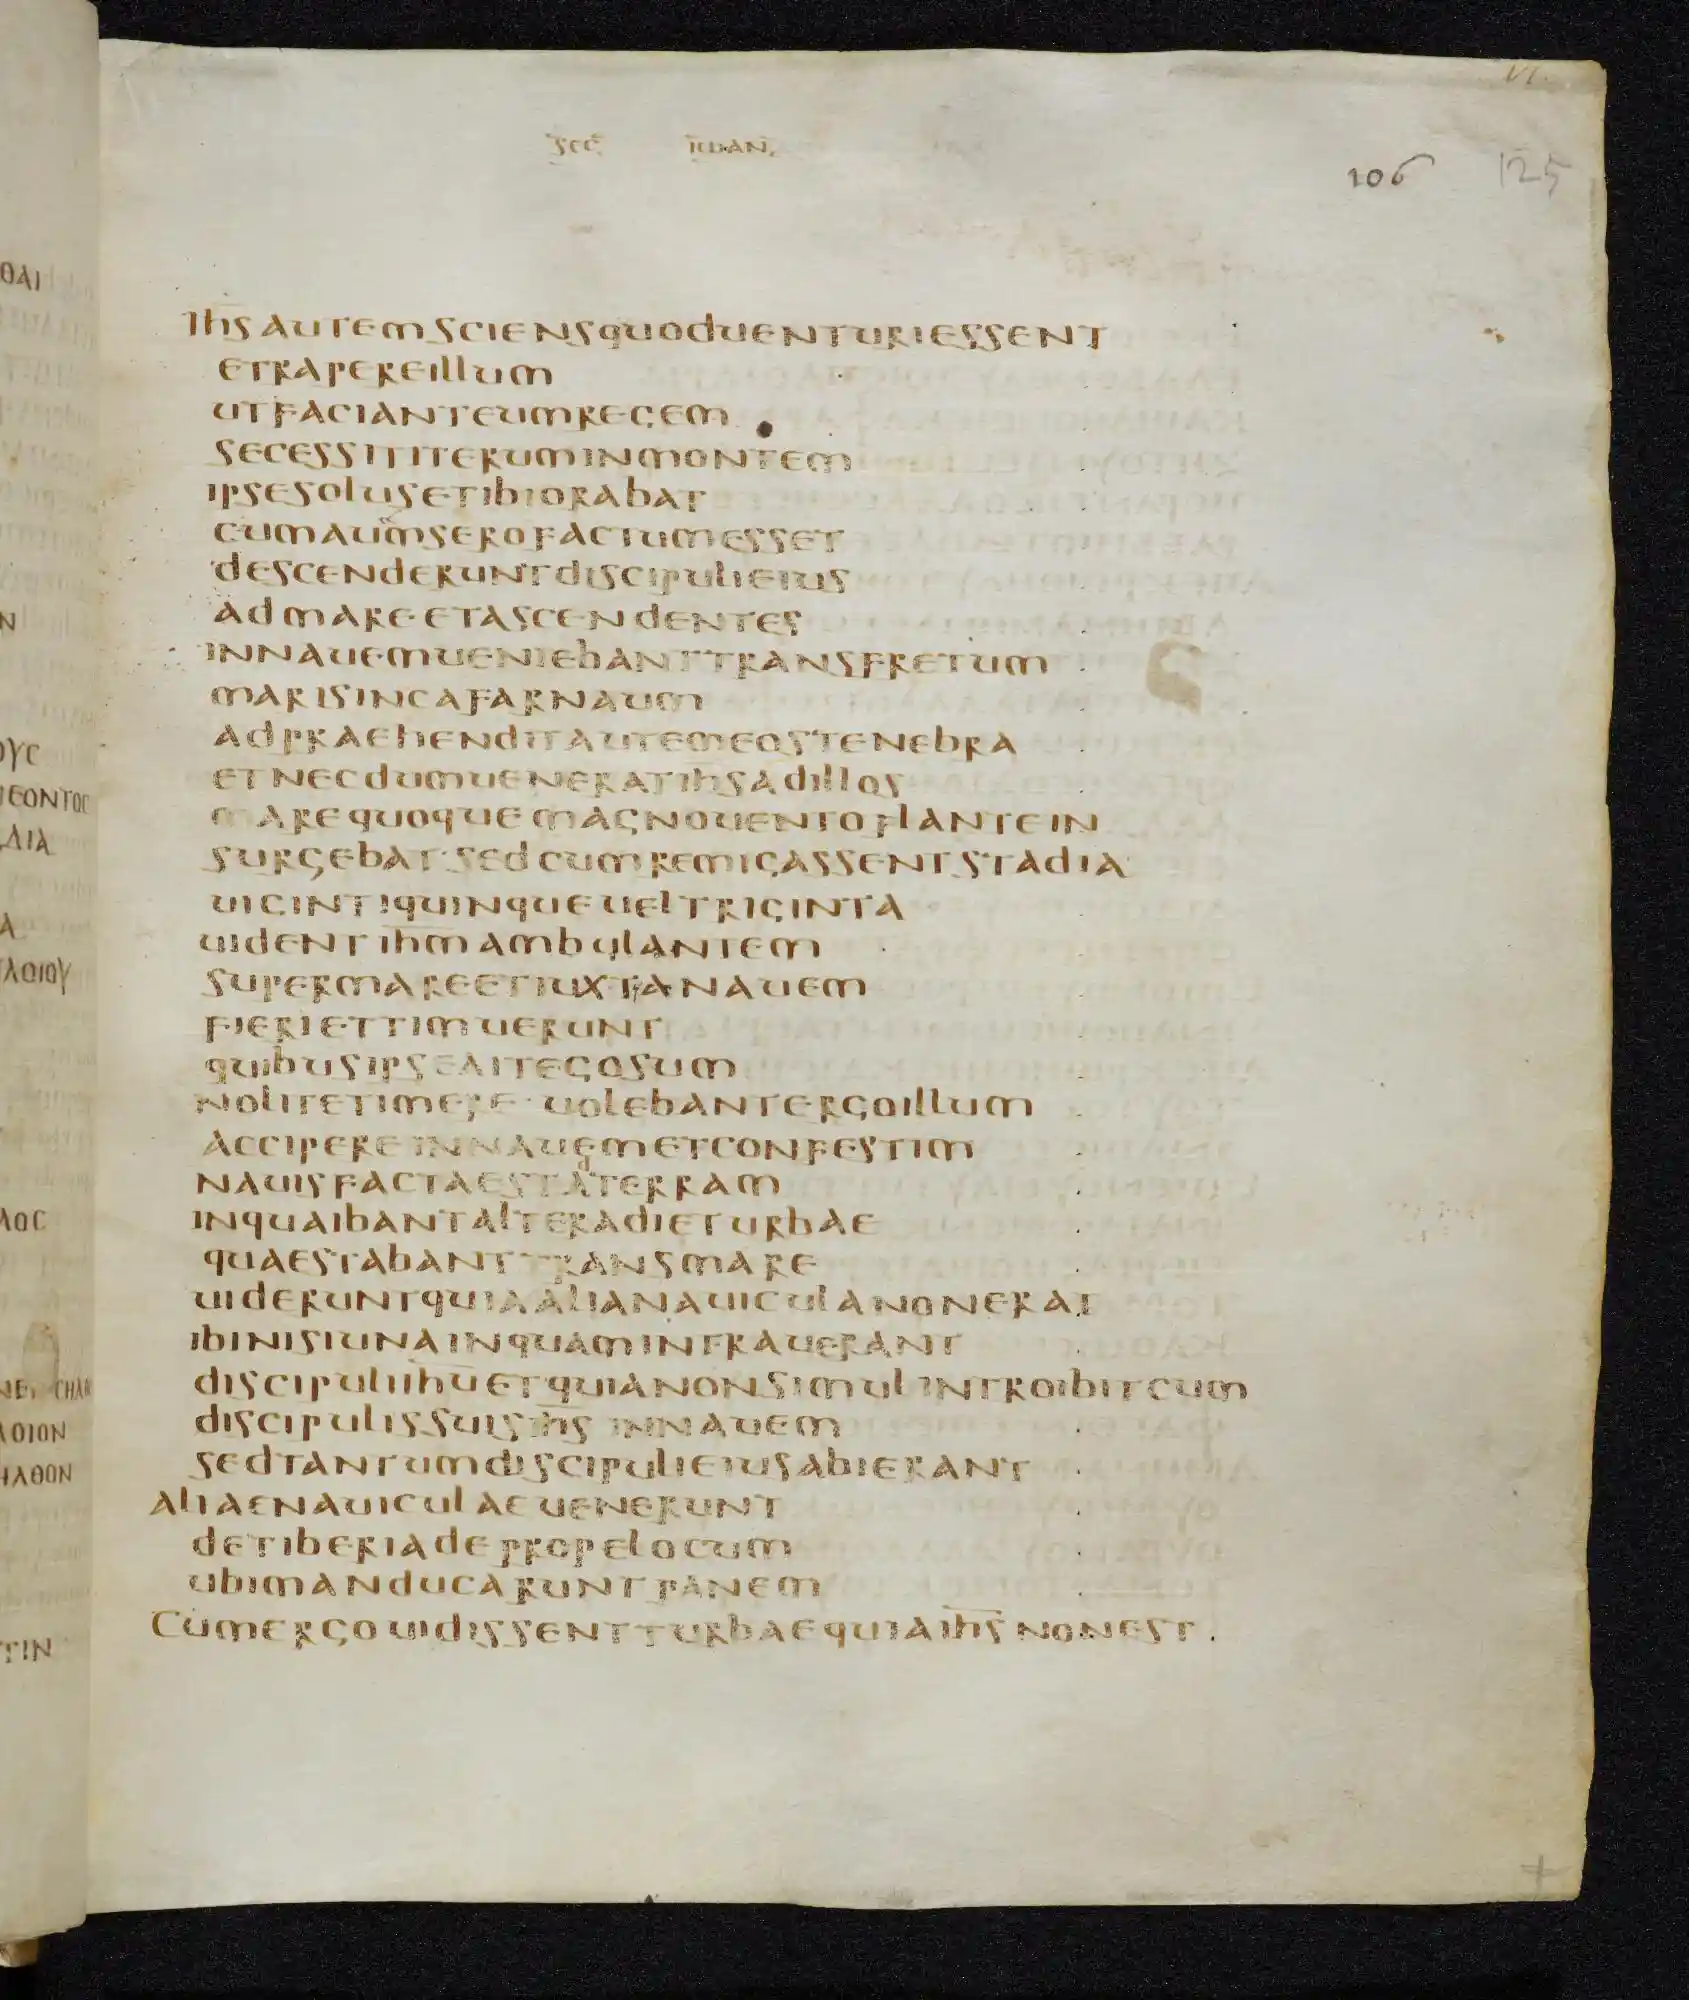 VI
SEC IOHAN
106 125
ΘΑΙ
Ν
ΟΥϹ
ΠΕΟΝΤΟϹ
ΔΙΑ
Α
ΠΛΟΙΟΥ
ΛΟϹ
ΛΟΙΟΝ
ΗΛΘΟΝ
ΤΙΝ
IHS AUTEM SCIENS QUOD UENTURI ESSENT
ET RAPERE ILLUM
UT FACIANT EUM REGEM
SECESSIT ITERUM IN MONTEM
IPSE SOLUS ET IBI ORABAT
CUM AUTM SERO FACTUM ESSET
DESCENDERUNT DISCIPULI EIUS
AD MARE ET ASCENDENTES
IN NAUEM UENIEBANT TRANS FRETUM
MARIS IN CAFARNAUM
ADPRAEHENDIT AUTEM EOS TENEBRA
ET NECDUM UENERAT IHS AD ILLOS
MARE QUOQUE MAGNO UENTO FLANTE IN
SURGEBAT · SED CUM REMIGASSENT STADIA
UIGINTI QUINQUE UEL TRIGINTA
UIDENT IHM AMBULANTEM
SUPER MARE ET IUXTA NAUEM
FIERI ET TIMUERUNT
QUIBUS IPSE AIT EGO SUM
NOLITE TIMERE · UOLEBANT ERGO ILLUM
ACCIPERE IN NAUEM ET CONFESTIM
NAUIS FACTA EST AD TERRAM
IN QUA IBANT ALTERA DIE TURBAE
QUAE STABANT TRANS MARE
UIDERUNT QUIA ALIA NAUICULA NON ERAT
IBI NISI UNA IN QUAM INTRAUERANT
DISCIPULI IHU ET QUIA NON SIMUL INTROIBIT CUM
DISCIPULIS SUIS IHS IN NAUEM
SED TANTUM DISCIPULI EIUS ABIERANT
ALIAE NAUICULAE UENERUNT
DE TIBERIADE PROPE LOCUM
UBI MANDUCARUNT PANEM
CUM ERGO UIDISSENT TURBAE QUIA IHS NON EST .